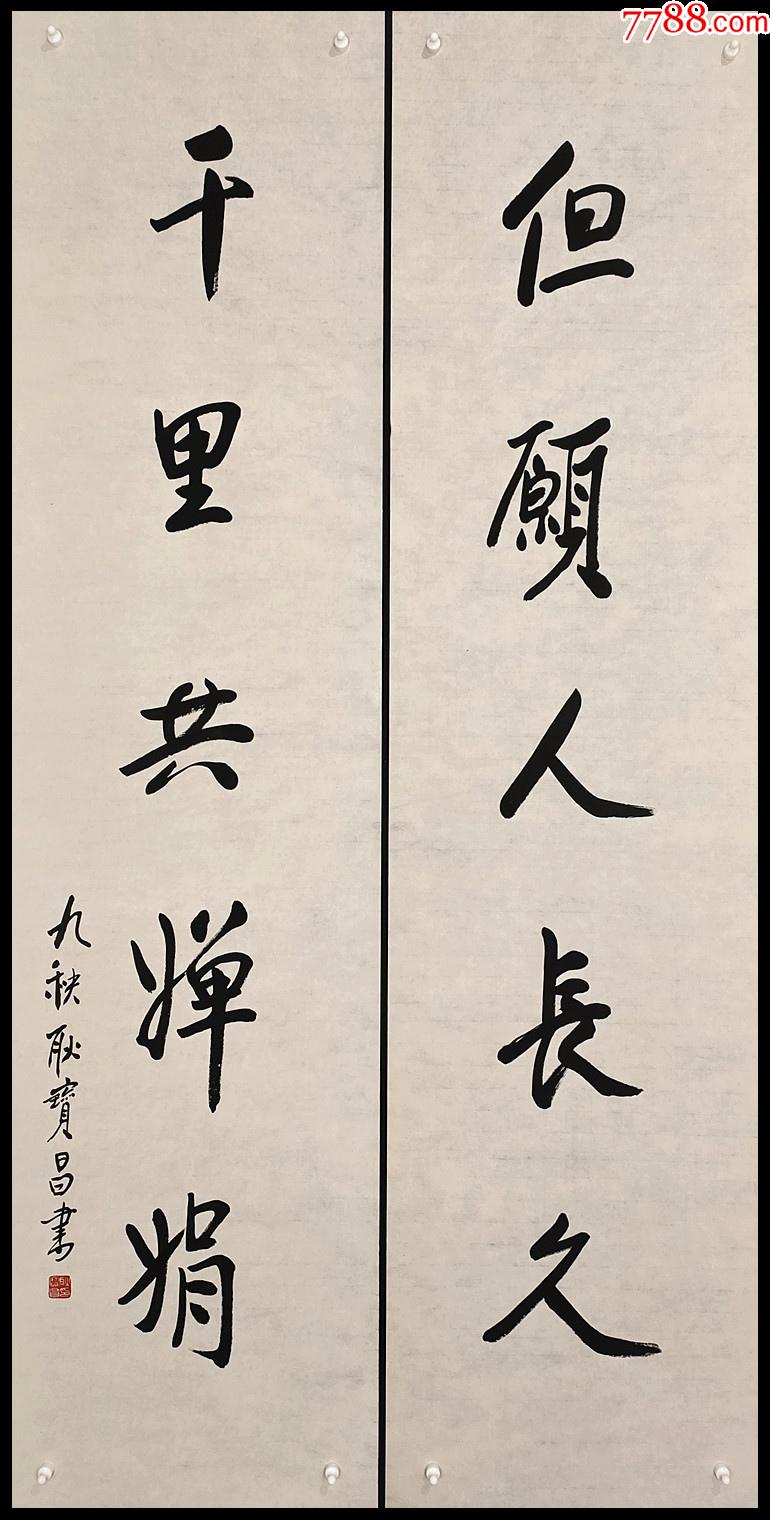 7788.com
但願人長久
千里共嬋娟
九秩耿寶昌書